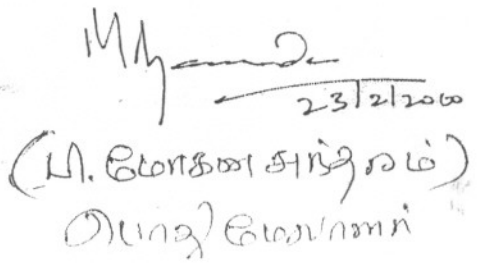 23/2/2000
(பி. மோகன சுந்தரம்)
பொது மேலாளர்